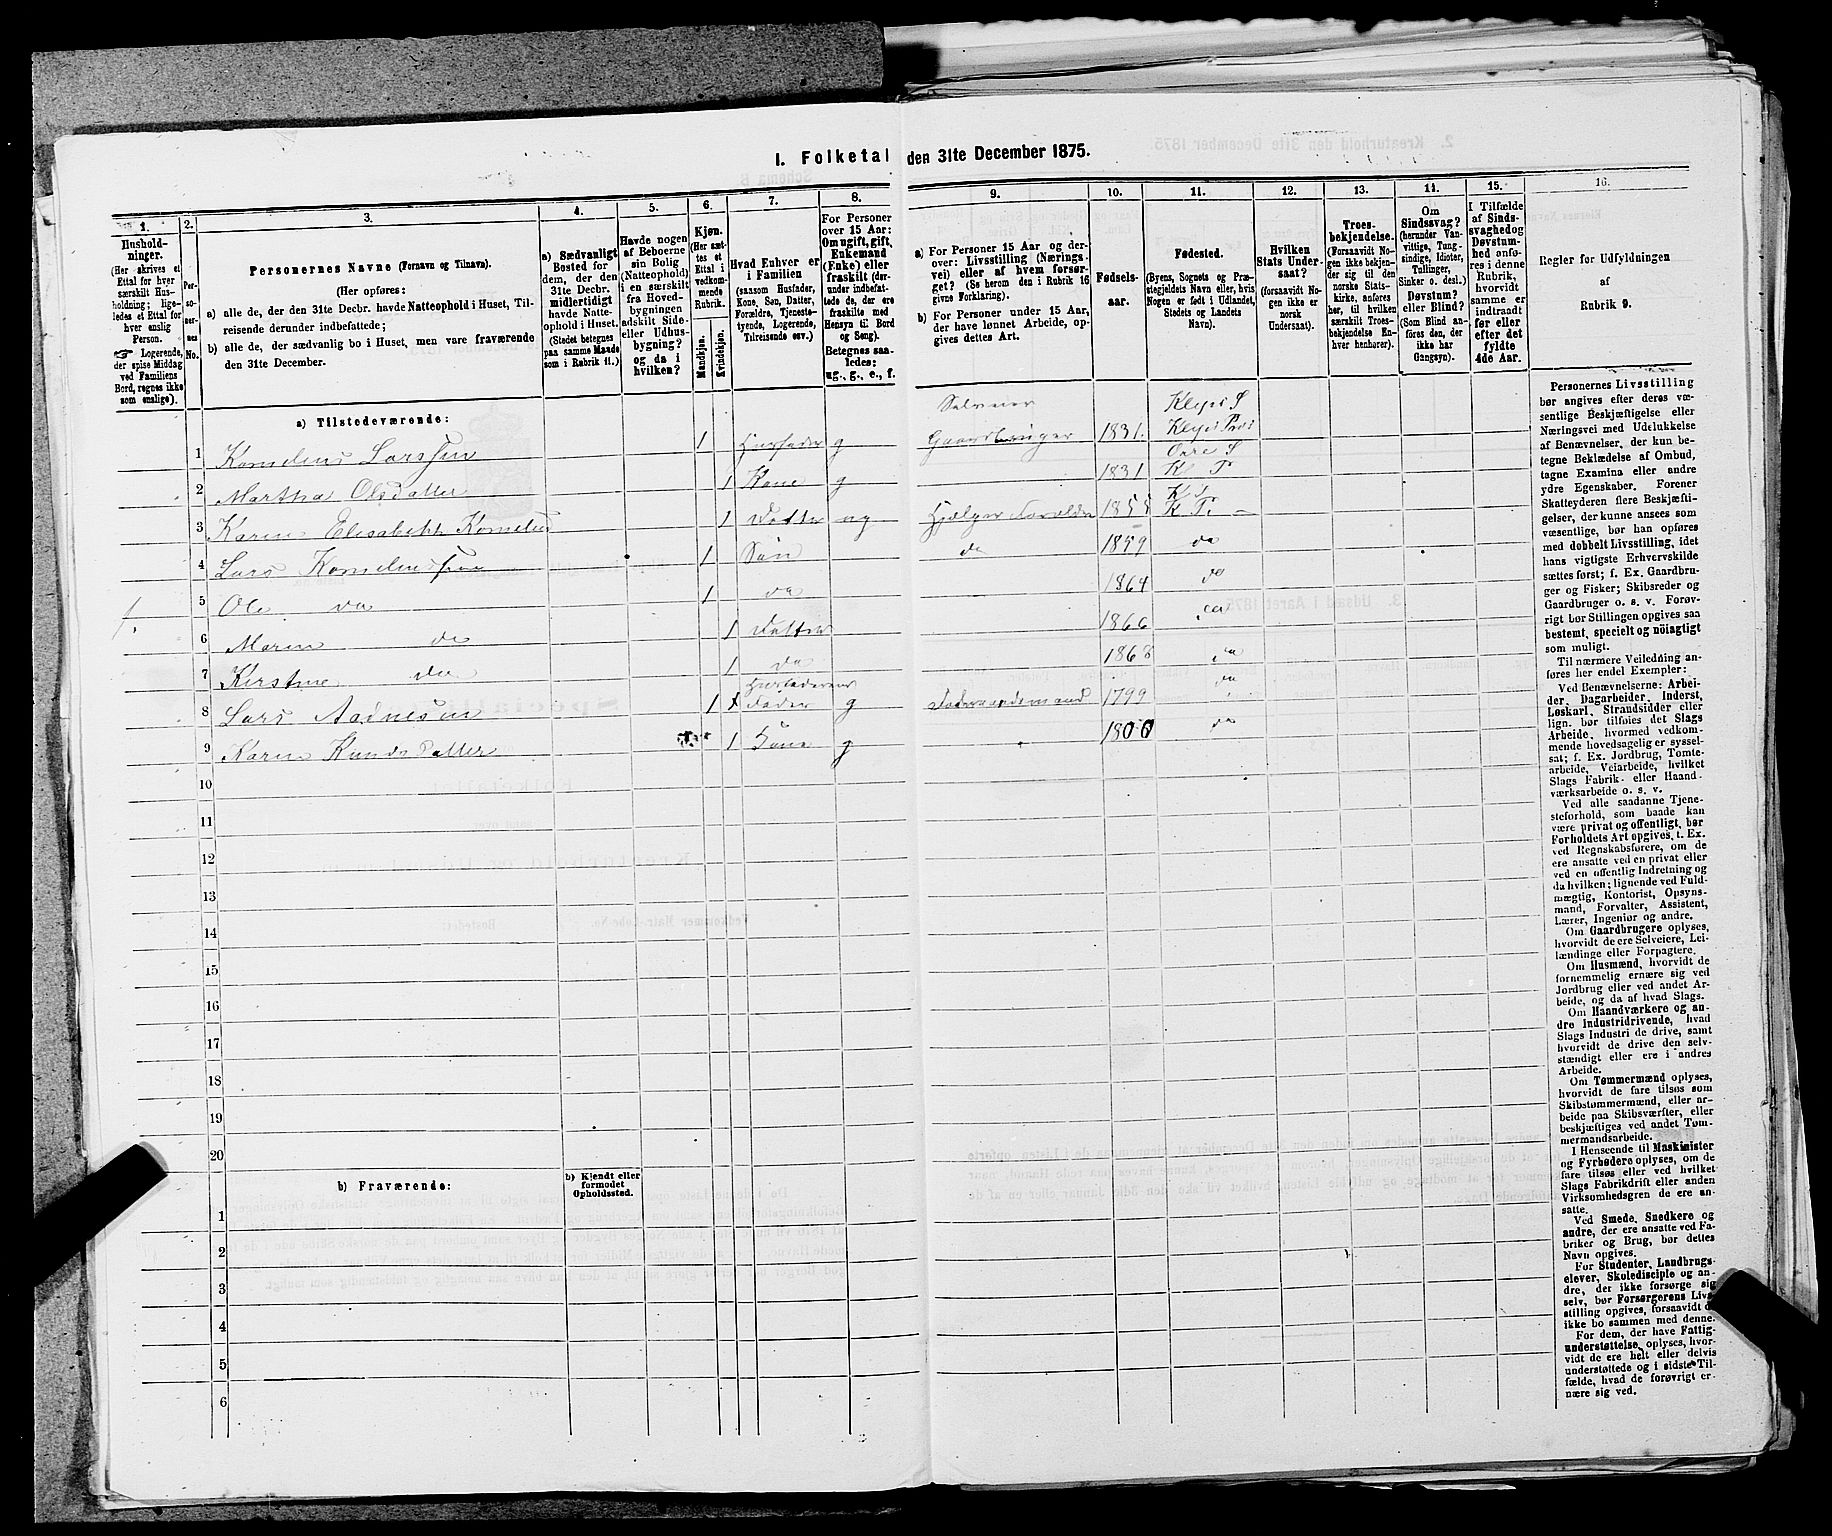 I. Folketal den 31te December 1875.
1.
Hushold-
ninger.
(Her skrives et
Ettal for hver
særskilt Hus-
holdning; lige-
ledes et Ettal for
hver enslig
Person.
☞ Logerende,
der spise Middag
ved Familiens
Bord, regnes ikke
som enslige).
2.
Per-
so-
ner-
nes
No.
3.
Personernes Navne (Fornavn og Tilnavn).
(Her opføres:
a) alle de, der den 31te Decbr. havde Natteophold i Huset, Til-
reisende derunder indbefattede;
b) alle de, der sædvanlig bo i Huset, men vare fraværende
den 31te December.
4.
a) Sædvanligt
Bosted for
dem, der den
31te Decbr.
midlertidigt
havde Natte-
ophold i Huset.
(Stedet betegnes
paa samme Maade
som i Rubrik 11.)
5.
Havde nogen
af Beboerne
sin Bolig
(Natteophold)
i en særskilt
fra Hoved-
bygningen
adskilt Side-
eller Udhus-
bygning?
og da i
hvilken?
6.
Kjøn.
(Her sæt-
tes et
Ettal i
vedkom-
mende
Rubrik.
Mandkjøn.
Kvindekjøn.
7.
Hvad Enhver er
i Familien
(saasom Husfader,
Kone, Søn, Datter,
Forældre, Tjeneste-
tyende, Logerende,
Tilreisende osv.)
8.
For Personer
over 15 Aar:
Om ugift, gift,
Enkemand
(Enke) eller
fraskilt (der-
under indbefat-
tede de, der ere
fraskilte med
Hensyn til Bord
og Seng).
Betegnes saa-
ledes:
ug., g., e., f.
9.
a) For Personer 15 Aar og der-
over: Livsstilling (Nærings-
vei) eller af hvem forsør-
get? (Se herom den i Rubrik 16
givne Forklaring.)
b) For Personer under 15 Aar,
der have lønnet Arbeide, op-
gives dettes Art.
10.
Fødsels-
aar.
11.
Fødested.
(Byens, Sognets og Præ-
stegjeldets Navn eller, hvis
Nogen er født i Udlandet,
Stedets og Landets
Navn).
12.
Hvilken
Stats Under-
saat?
(forsaavidt No-
gen ikke er
norsk
Undersaat).
13.
Troes-
bekjendelse.
(Forsaavidt No-
gen ikke bekjen-
der sig til den
norske Stats-
kirke, anføres
her, til hvilken
særskilt Troes-
bekjendelse En-
hver henhører).
14.
Om
Sindssvag?
(herunder Van-
vittige, Tung-
sindige, Idioter,
Tullinger,
Sinker o. desl.)
Døvstum?
eller Blind?
(Som Blind an-
føres den, der
ikke har
Gangsyn).
15.
I Tilfælde
af Sinds-
svaghed og
Døvstum-
hed anfø-
res i denne
Rubrik,
hvorvidt
samme er
indtraadt
før eller
efter det
fyldte
4de Aar.
16.
Regler for Udfyldningen
af
Rubrik 9.
a) Tilstedeværende:
1 Kornelius Larssen 1 Husfader g Selveier Gaardbruger 1831. Klepps S Klepps Præs
2 Martha Olsdatter 1 Kone g 1831 Orre S K P
3 Karen Elisabeth Kornelius 1 Datter ug Hjælper Forældre 1855 K S K P.
4 Lars Korneliussen 1 Søn do 1859 do
5 Ole do 1 do 1864 do
6 Maren do 1 Datter 1866 do
7 Kirstine do 1 do 1868 do
8 Lars Aadnesen 1 Husfaderens Fader g Føderaadsmand 1799 do
9 Karen Knudsdatter 1 Kone g 1800 do
10
11
12
13
14
15
16
17
18
19
20
b) Fraværende:
b) Kjendt eller
formodet
Opholdssted.
1
2
3
4
5
6
Personernes Livsstilling
bør angives efter deres væ-
sentlige Beskjæftigelse eller
Næringsvei med Udelukkelse
af Benævnelser, der kun be-
tegne Beklædelse af Ombud,
tagne Examina eller andre
ydre Egenskaber. Forener
Skatteyderen flere Beskjæfti-
gelser, der kunne ansees som
væsentlige, bør han opføres
med dobbelt Livsstilling, idet
hans vigtigste Erhvervskilde
sættes først; f. Ex. Gaardbru-
ger og Fisker; Skibsreder og
Gaardbruger o. s. v. Forøv-
rigt bør Stillingen opgives saa
bestemt, specielt og nøiagtigt
som muligt.
Til nærmere Veiledning an-
føres her endel Exempler:
Ved Benævnelserne: Arbei-
der, Dagarbeider, Inderst,
Løskarl, Strandsidder eller
lign. bør tilføies det Slags
Arbeide, hvormed vedkom-
mende hovedsagelig er syssel-
sat; f. Ex. Jordbrug, Tomte-
arbeide, Veiarbeide, hvilket
Slags Fabrik- eller Haand-
værksarbeide o. s. v.
Ved alle saadanne Tjene-
steforhold, som baade kan
være privat og offentligt, bør
Forholdets Art opgives, t. Ex.
ved Regnskabsførere, om de
ere ansatte ved en privat eller
ved en offentlig Indretning og
da hvilken; lignende ved Fuld-
mægtig, Kontorist, Opsyns-
mand, Forvalter, Assistent,
Lærer, Ingeniør og andre.
Om Gaardbrugere oplyses,
hvorvidt de ere Selveiere, Lei-
lændinge eller Forpagtere.
Om Husmænd, hvorvidt de
fornemmelig ernære sig ved
Jordbrug eller ved andet Ar-
beide, og da af hvad Slags.
Om Haandværkere og an-
dre Industridrivende, hvad
Slags Industri de drive, samt
hvorvidt de drive den selv-
stændigt eller ere i andres
Arbeide.
Om Tømmermænd oplyses,
hvorvidt de fare tilsøs som
Skibstømmermænd, eller ar-
beide paa Skibsværfter, eller
beskjæftiges ved andet Tøm-
mermandsarbeide.
I Henseende til Maskinister
og Fyrbødere oplyses, om de
fare tilsøs eller ved hvilket
Slags Fabrikdrift eller anden
Virksomhedsgren de ere an-
satte.
Ved Smede, Snedkere og
andre, der ere ansatte ved Fa-
briker og Brug, bør dettes
Navn opgives.
For Studenter, Landbrugs-
elever, Skoledisciple og an-
dre, der ikke forsørge sig
selv, bør Forsørgerens Livs-
stilling opgives, forsaavidt de
ikke bo sammen med denne.
For dem, der have Fattig-
understøttelse, oplyses, hvor-
vidt de ere helt eller delvis
understøttede og i sidste Til-
fælde, hvad de forøvrigt er-
nære sig ved.